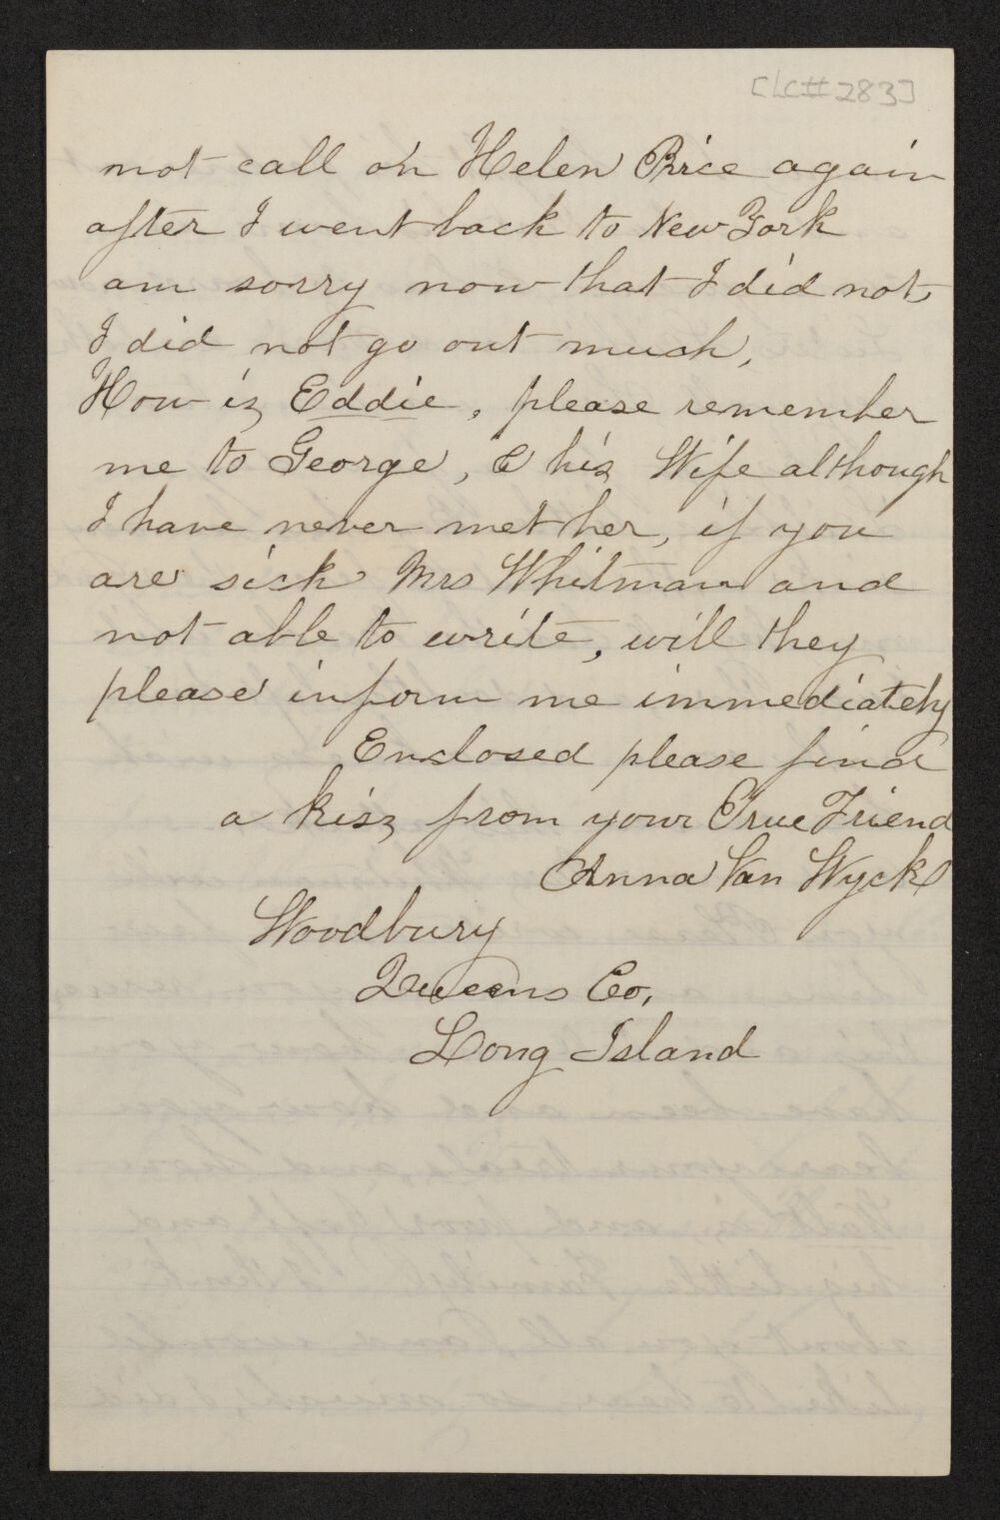 [LC#283]
not call on Helen Price again
after I went back to New York
am sorry now that I did not,
I did not go out much,
How is Eddie, please remember
me to George, & his Wife although
I have never met her, if you
are sick Mrs Whitman and
not able to write, will they
please inform me immediately
Enclosed please find
a kiss from your True Friend
Anna Van Wyck
Woodbury
Queens Co,
Long Island